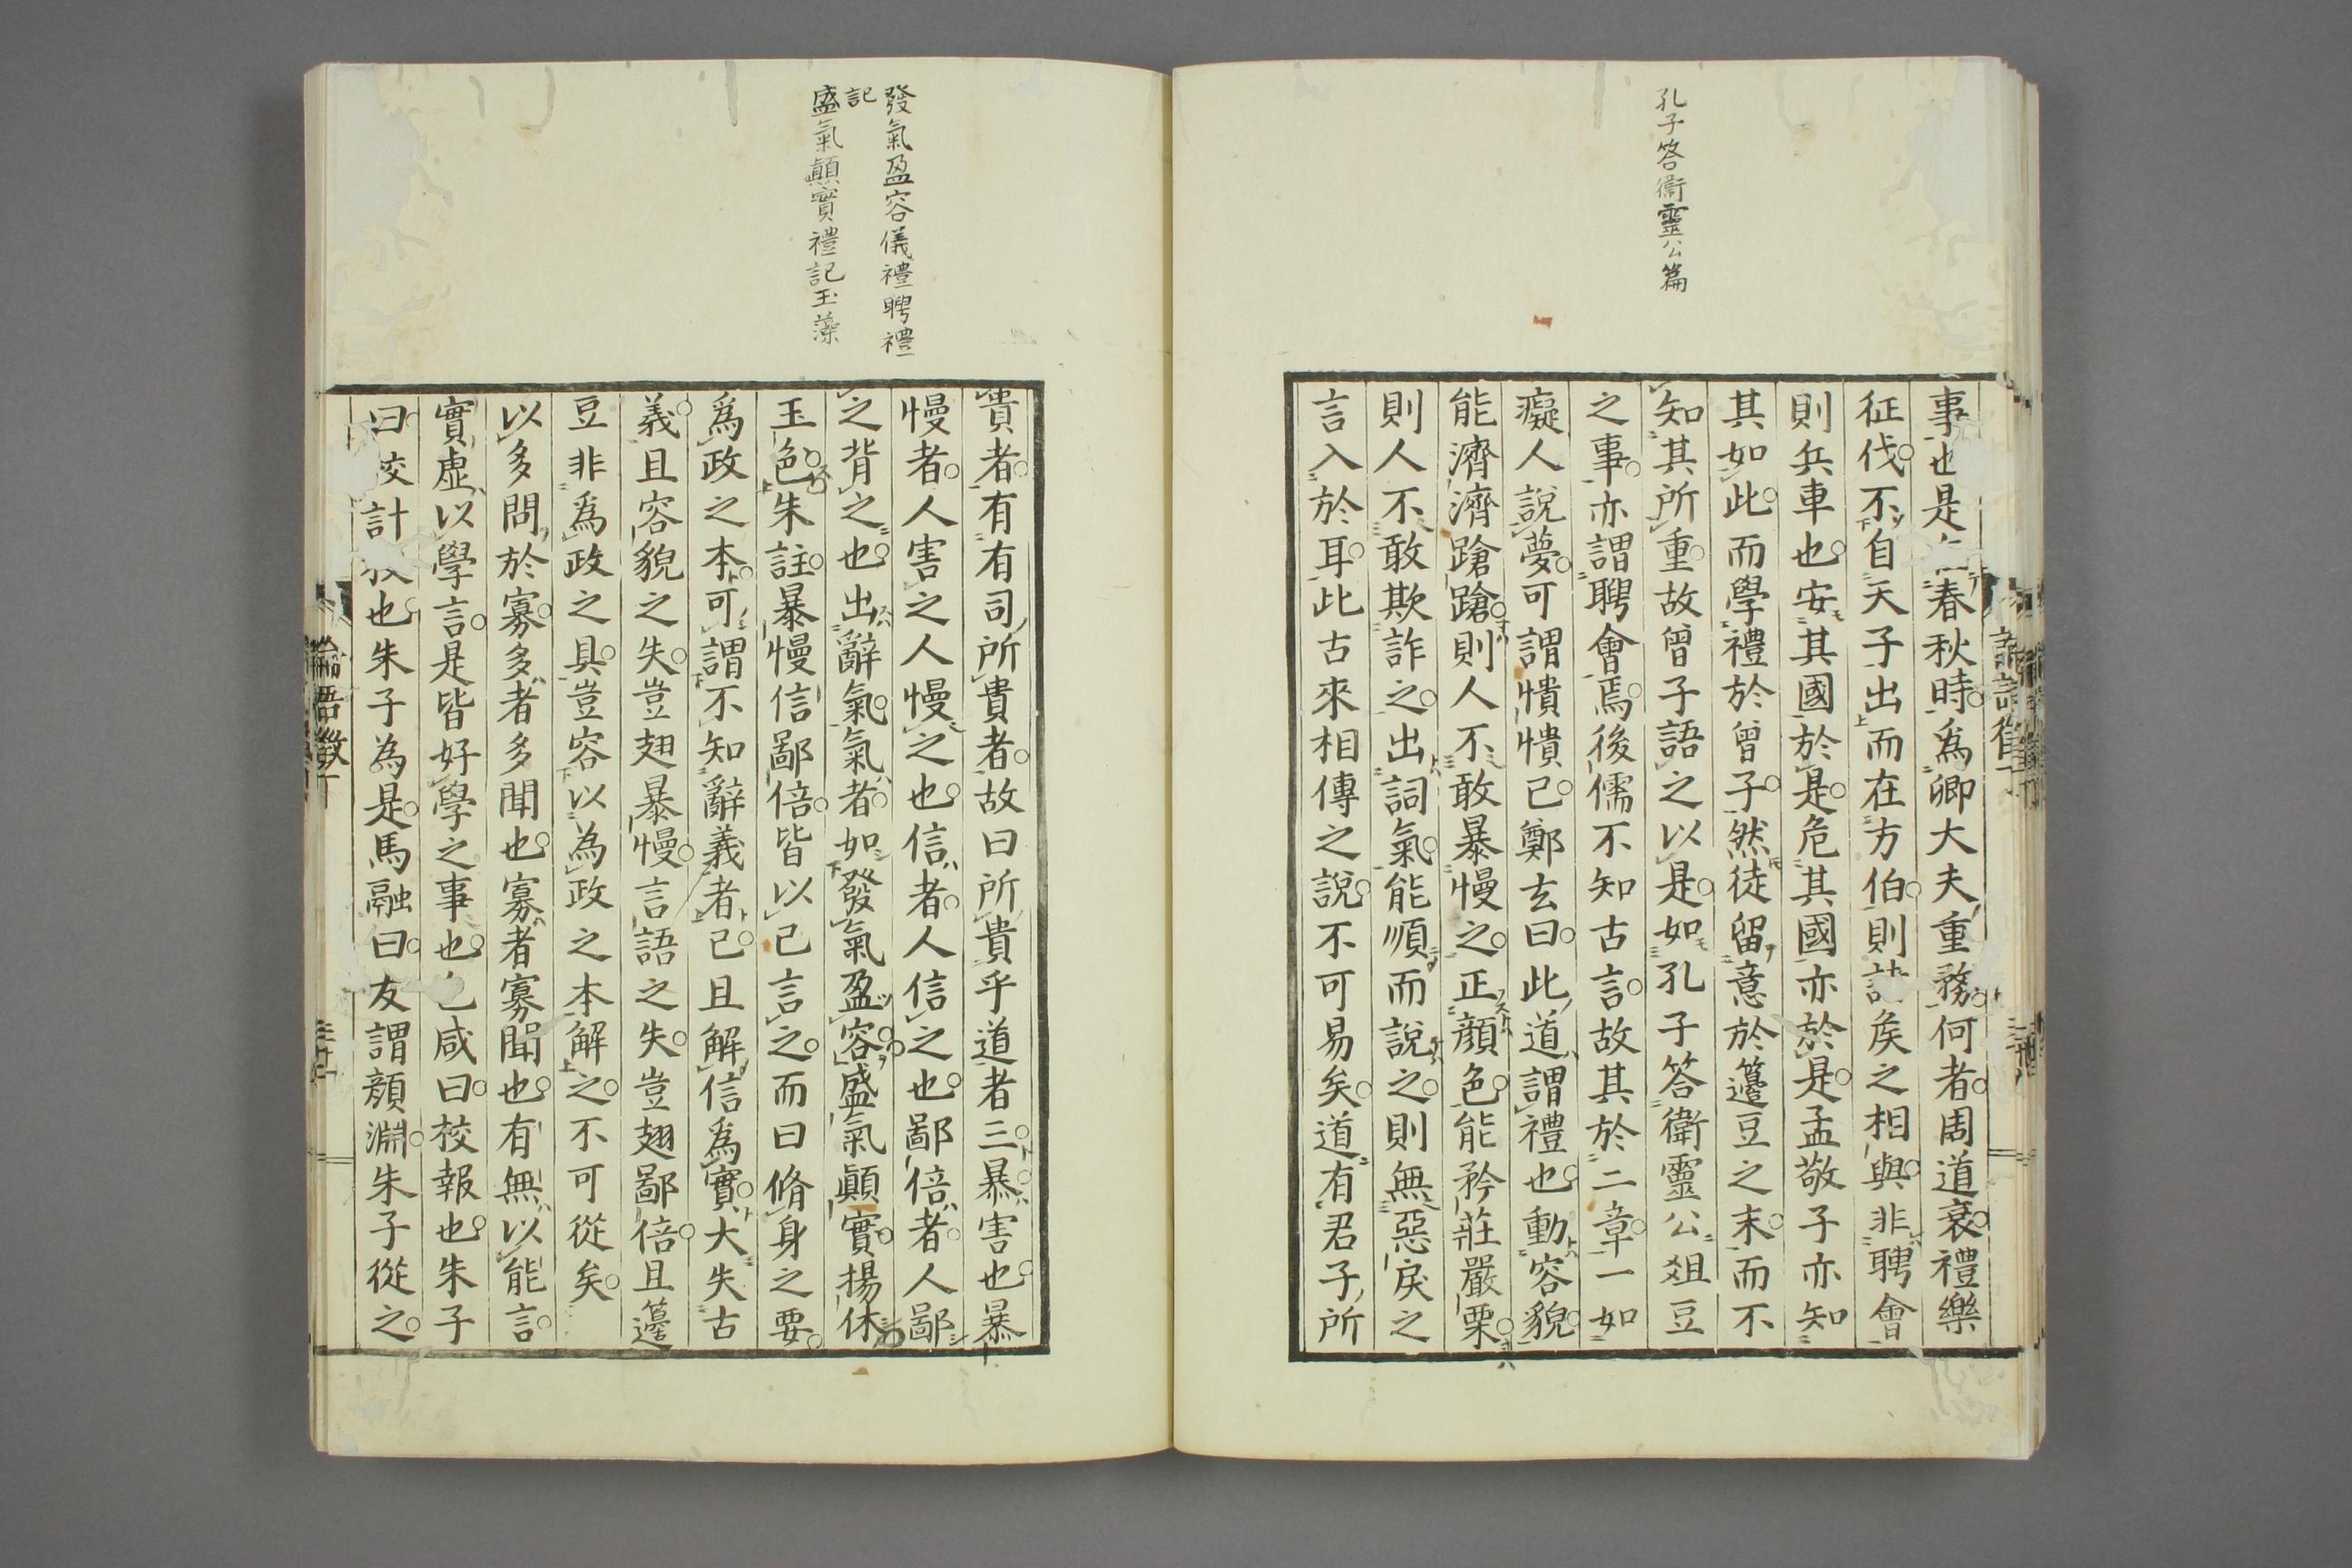 孔子答衞靈公篇
事也是在春秋時爲卿大夫重務何者周道衰禮樂
征伐不自天子出而在方伯則諸矦之相與非聘會
則兵車也安其國於是危其國亦於是孟敬子亦知
其如此而學禮於曾子然徒留意於籩豆之末而不
知其所重故曾子語之以是如孔子答衛靈公俎豆
之事亦謂聘會焉後儒不知古言故其於二章一如
癡人說夢可謂憒憒已鄭玄曰此道謂禮也動容貌
能濟濟蹌蹌則人不敢暴慢之正顔色能矜莊嚴栗
則人不敢欺詐之出詞氣能順而說之則無惡戾之
言入於耳此古來相傳之說不可易矣道有君子所
發氣盈容儀禮聘禮
記
盛氣顚實禮記玉藻
貴者有有司所貴者故曰所貴乎道者三暴害也暴
慢者人害之人慢之也信者人信之也鄙倍者人鄙
之背之也出辭氣氣者如發氣盈容盛氣顚實揚休
玉色朱註暴慢信鄙倍皆以己言之而曰脩身之要
爲政之本可謂不知辭義者已且解信爲實大失古
義且容貌之失豈翅暴慢言語之失豈翅鄙倍且籩
豆非爲政之具豈容以為政之本解之不可從矣
以多問於寡多者多聞也寡者寡聞也有無以能言
實虛以學言是皆好學之事也包咸曰校報也朱子
曰校計較也朱子為是馬融曰友謂顔淵朱子從之